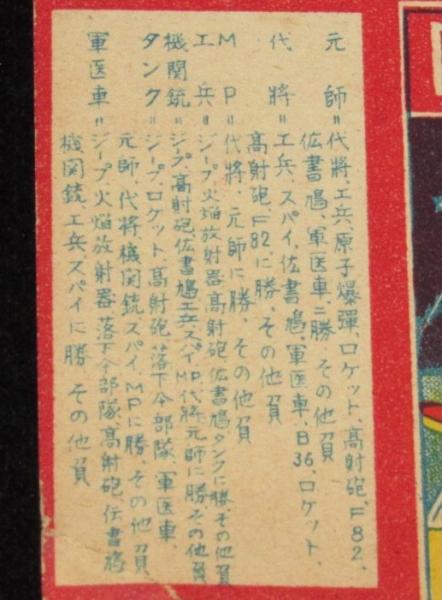 元師＝代將、工兵、原子爆彈、ロケット、高射砲、F82、
伝書鳩、軍医車、ニ勝 その他負
代將＝工兵、スパイ、伝書鳩、軍医車、B36、ロケット、
高射砲、F82に勝、その他負
MP＝代將、元師に勝、その他負
工兵＝ジープ、火焔放射器、高射砲、伝書鳩、タンクに勝、その他負
機関銃＝ジープ、高射砲、伝書鳩、工兵、スパイ、MP、代將、元師に勝、その他負
タンク＝ジープ、ロケット、高射砲、落下傘部隊、軍医車、
元師、代將、機関銃、スパイ、MPに勝、その他負
軍医車＝ジープ、火焔放射器、落下傘部隊、高射砲、伝書鳩
機関銃、工兵、スパイに勝 その他負